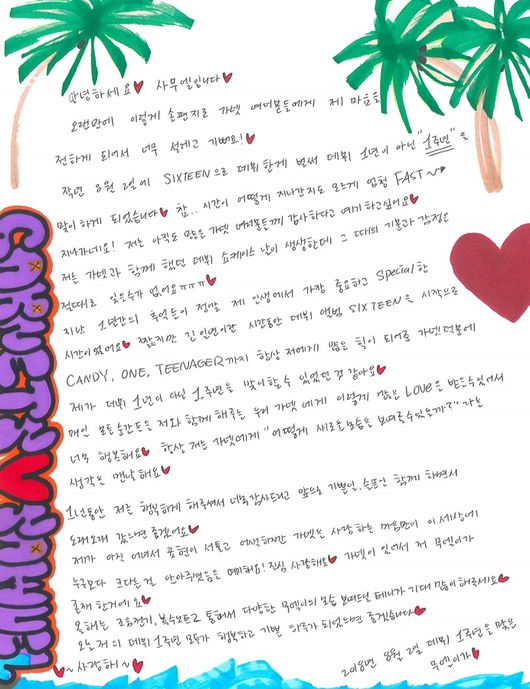 안녕하세요♥ 사무엘입니다♥
오랜만에 이렇게 손편지로 가넷 여러분들에게 제 마음을
전하게 되어서 너무 설레고 기뻐요!♥
작년 8월 2일에 SIXTEEN으로 데뷔한게 벌써 데뷔 1년이 아닌 "1주년"을
맞이하게 되었습니다♥ 참... 시간이 어떻게 지나간지도 모르게 엄청 FAST~
지나가네요! 저는 아직도 많은 가넷 여러분들께 감사하다고 얘기하고싶어요♥
저는 가넷과 함께 했던 데뷔 쇼케이스 날이 생생한데 그 때의 기분과 감정은
절때로 잊을수가 없어요ㅠㅠㅠ♥
지난 1년간의 추억들이 정말 제 인생에서 가장 중요하고 special한
시간이였어요♥ 짧지만 긴 일년이란 시간동안 데뷔 앨범 SIXTEEN을 시작으로
CANDY, ONE, TEENAGER까지 항상 저에게 많은 힘이 되어준 가넷덕분에
제가 데뷔 1년이 아닌 1주년을 맞이할수 있었던것 같아요♥
매인 모든순간들을 저와 함께해주는 우리 가넷에게 이렇게 많은 Love을 받을수있어서
너무 행복해요♥ 항상 저는 가넷에게 "어떻게 새로운모습을 보여줄수있을까?" 라는
생각을 맨날해요♥
1년동안 저를 행복하게 해주셔서 너무감사드리고 앞으로 기쁠일, 슬픈일 함께 하면서
오래오래 갔으면 좋겠어요♥
제가 아직 어려서 표현이 서툴고 어색하지만 가넷을 사랑하는 마음만이 이 세상에
누구보다 크다는걸 알아주셨음을 해요! 진심 사랑해요♥ 가넷이 있어서 저 무엘이가
존재 한거에요♥
올해는 통해서 다양한 무엘이의 모습 보여드릴 테니까 기대 많이해주세요♥
오늘 저의 데뷔 1주년 모두가 행복하고 기쁜 하루가 되었으면 좋겠습니다♥
♥~사랑해~♥
2018년 8월 2일 데뷔 1주년을 맞은
무엘이가♥
GARNET♥SAMUEL